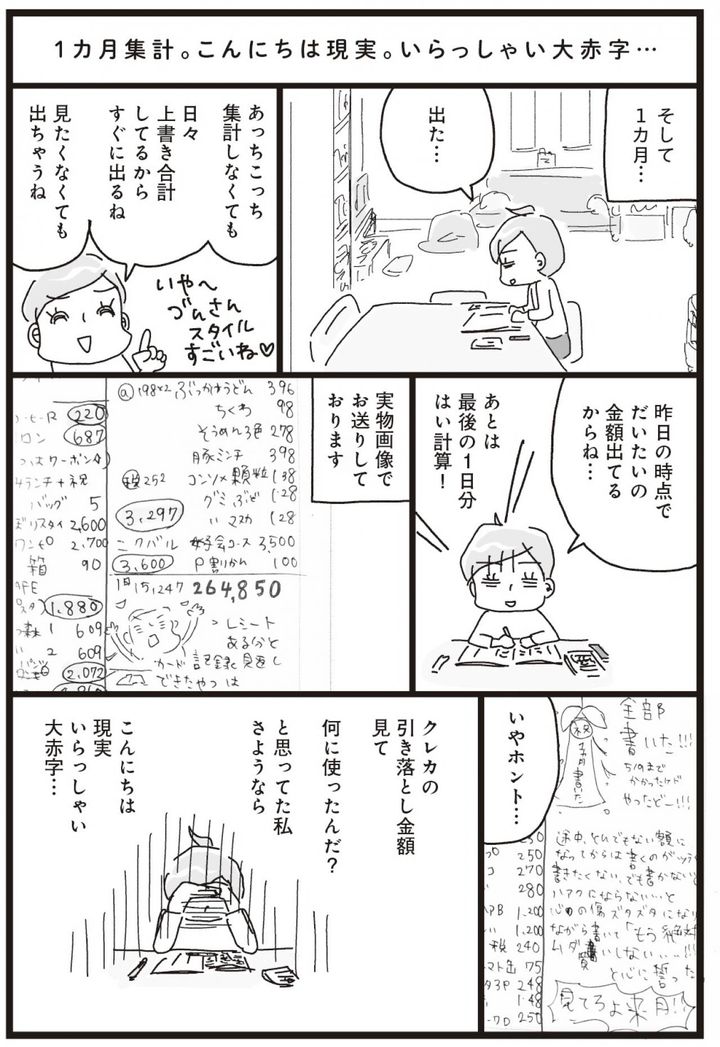 1カ月集計。こんにちは現実。いらっしゃい大赤字…
そして
1カ月…
出た…
あっちこっち
集計しなくても
日々
上書き合計
してるから
すぐに出るね
見たくなくても
出ちゃうね
いやへ
づんさん
スタイル
すごいね♡
昨日の時点で
だいたいの
金額出てる
からね…
あとは
最後の1日分
はい計算！
実物画像で
お送りして
おります
220
ロン 687
クーポン
ランチ+祝
バッグ 5
2,600
2,700
箱 90
1,880
1 609
2 609
2,072
ⓐ198×2 ぶっかけうどん 396
ちくわ 98
そうめん3色 278
豚ミンチ 398
税252 コンソメ顆粒 138
グミ ぶど 128
〃 マスカ 128
3,297
ニクバル 好会コース 3,500
3,600 P割りかん 100
15,247 264,850
レシート
あるかと
カード記録見返し
できたやつは
全部
書いた!!!
5/9まで
かかったケド
やったどー!!!
祝
1ヵ月書いた
いやホント…
途中、とんでもない額に
なってからは書くのがツラく
書きたくない、でも書かないと
ハアクにならない…と
心の傷ズタズタになり
ながら書いて「もう絶対
ムダ買いしない…!!!
と心に誓った
見てろよ来月!!
250
270
280
1,200
1,200
税 240
トマト缶 75
3P 248
148
250
クレカの
引き落とし金額
見て
何に使ったんだ?
と思ってた私
さようなら
こんにちは
現実
いらっしゃい
大赤字…